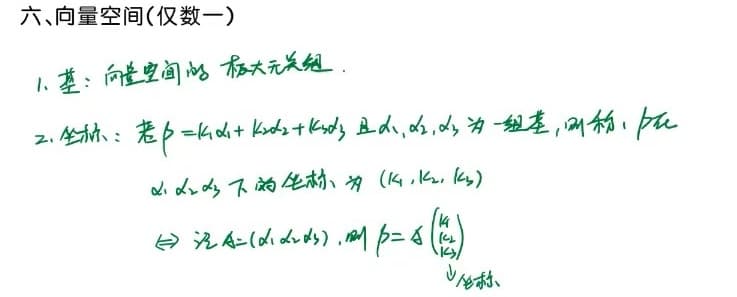 六、向量空间(仅数一)
1. 基：向量空间的 极大无关组．
2. 坐标：若β=k₁α₁+k₂α₂+k₃α₃ 且α₁,α₂,α₃ 为一组基，则称，β在
α₁ α₂ α₃ 下的坐标、为 (k₁,k₂,k₃)
⇔ 记A=(α₁ α₂ α₃)．则 β=A(k₁ k₂ k₃)
↓坐标